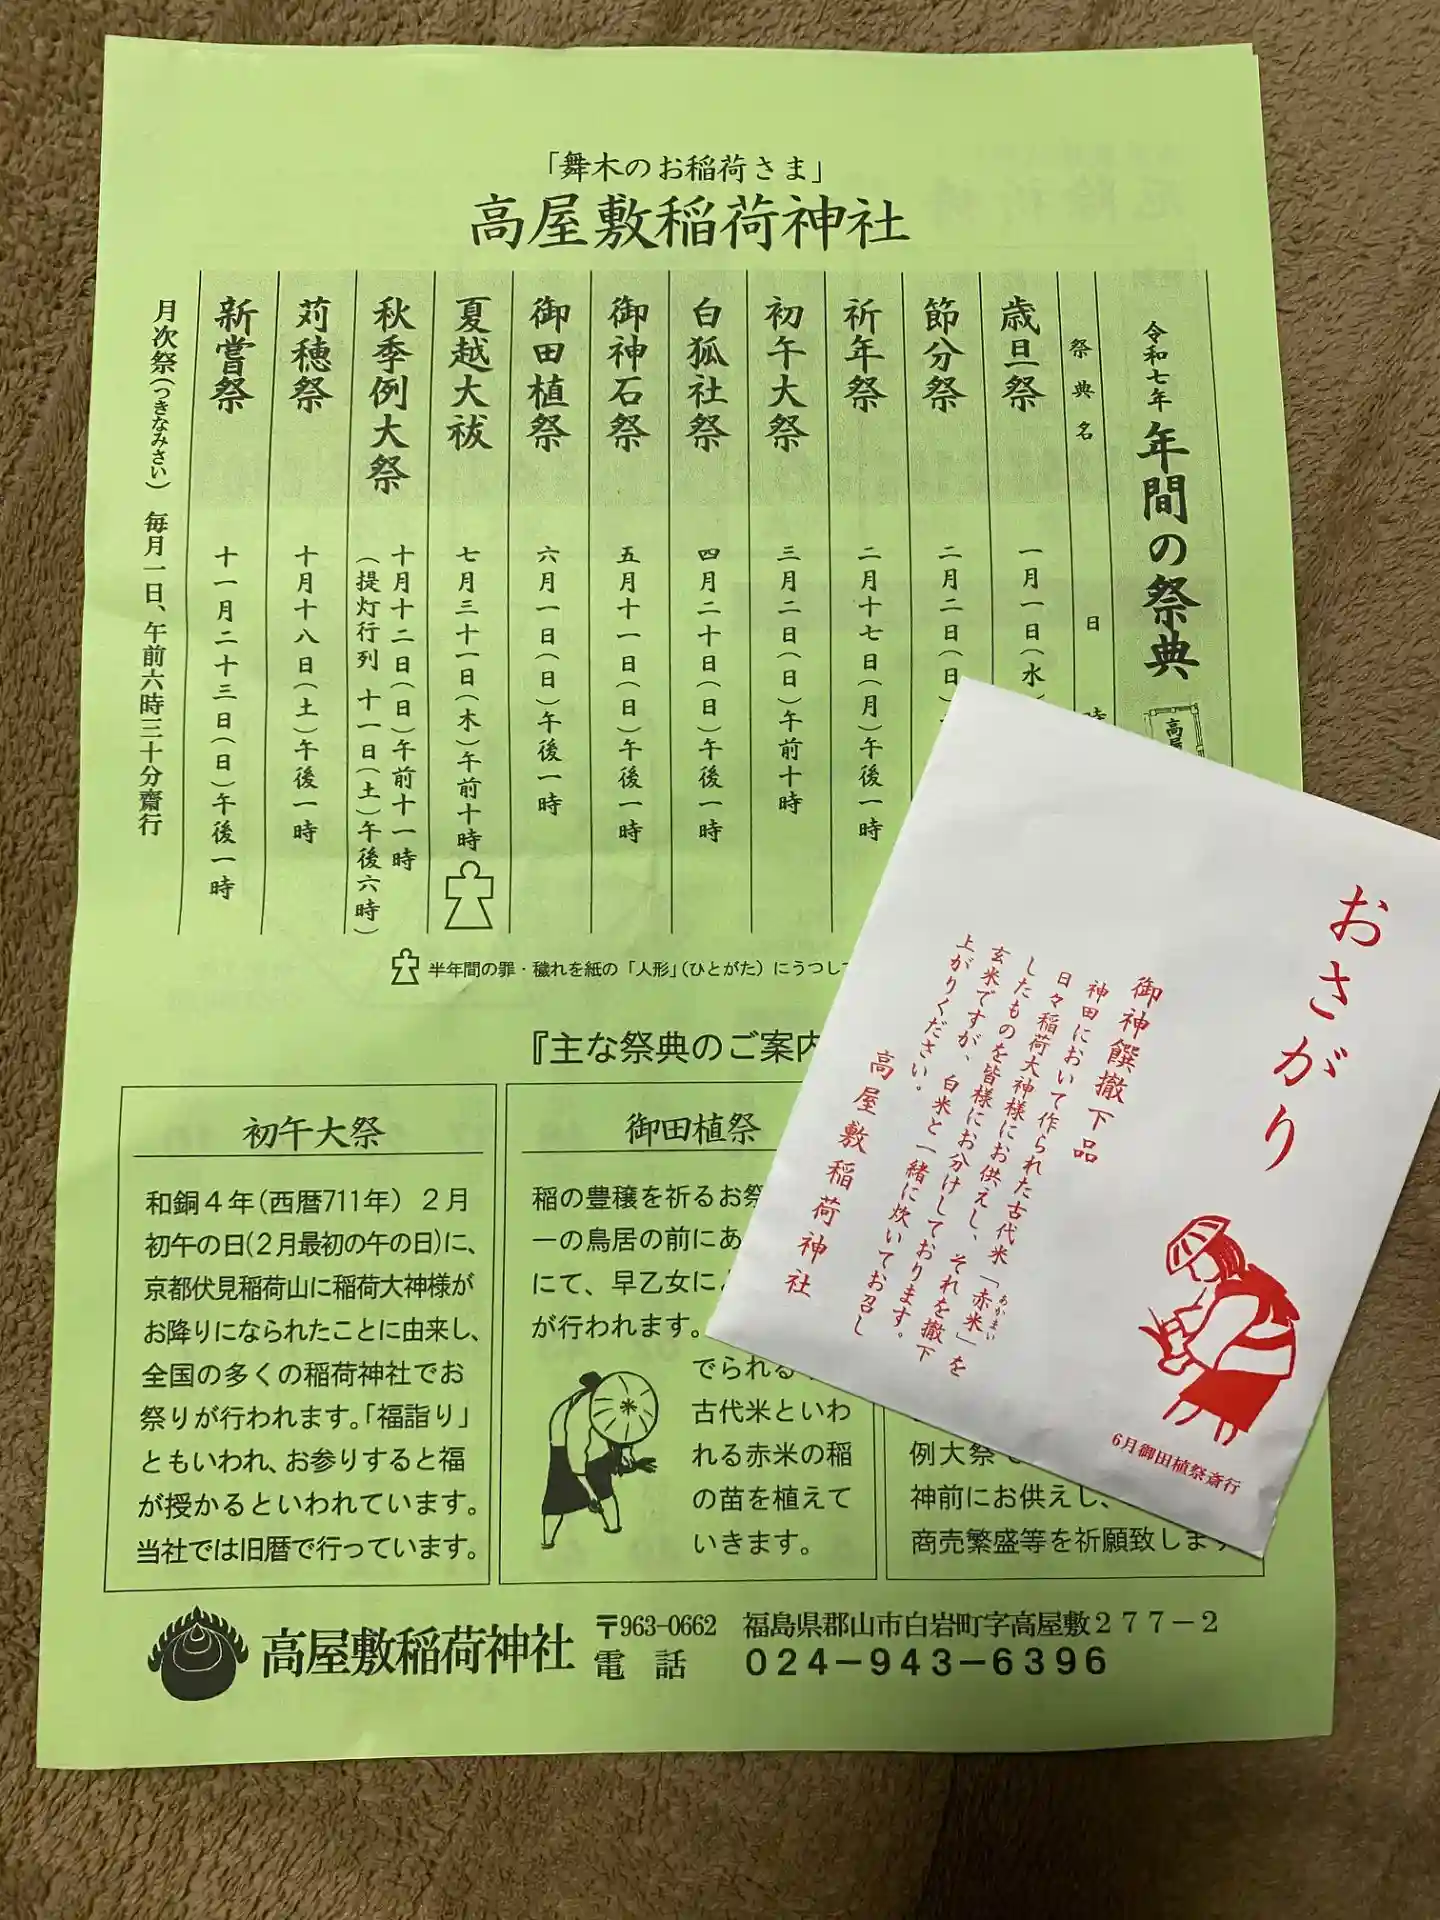 「舞木のお稲荷さま」
高屋敷稲荷神社
令和七年 年間の祭典
高屋
祭典名 日
歳旦祭 一月一日(水
節分祭 二月二日(日)
祈年祭 二月十七日(月)午後一時
初午大祭 三月二日(日)午前十時
白狐社祭 四月二十日(日)午後一時
御神石祭 五月十一日(日)午後一時
御田植祭 六月一日(日)午後一時
夏越大祓 七月三十一日(木)午前十時
秋季例大祭 十月十二日(日)午前十一時
(提灯行列 十一日(土)午後六時)
苅穂祭 十月十八日(土)午後一時
新嘗祭 十一月二十三日(日)午後一時
月次祭(つきなみさい) 毎月一日、午前六時三十分齋行
半年間の罪・穢れを紙の「人形」(ひとがた)にうつして
『主な祭典のご案内
初午大祭
和銅4年(西暦711年)2月
初午の日(2月最初の午の日)に、
京都伏見稲荷山に稲荷大神様が
お降りになられたことに由来し、
全国の多くの稲荷神社でお
祭りが行われます。「福詣り」
ともいわれ、お参りすると福
が授かるといわれています。
当社では旧暦で行っています。
御田植祭
稲の豊穣を祈るお祭
一の鳥居の前にあ
にて、早乙女に
が行われます。
でられる
古代米といわ
れる赤米の稲
の苗を植えて
いきます。
例大祭
神前にお供えし、
商売繁盛等を祈願致します
高屋敷稲荷神社
〒963-0662 福島県郡山市白岩町字高屋敷277-2
電話 024-943-6396
おさがり
御神饌撤下品
神田において作られた古代米「赤米」を
あかまい
日々稲荷大神様にお供えし、それを撤下
したものを皆様にお分けしております。
玄米ですが、白米と一緒に炊いてお召し
上がりください。
高屋敷稲荷神社
6月御田植祭斎行